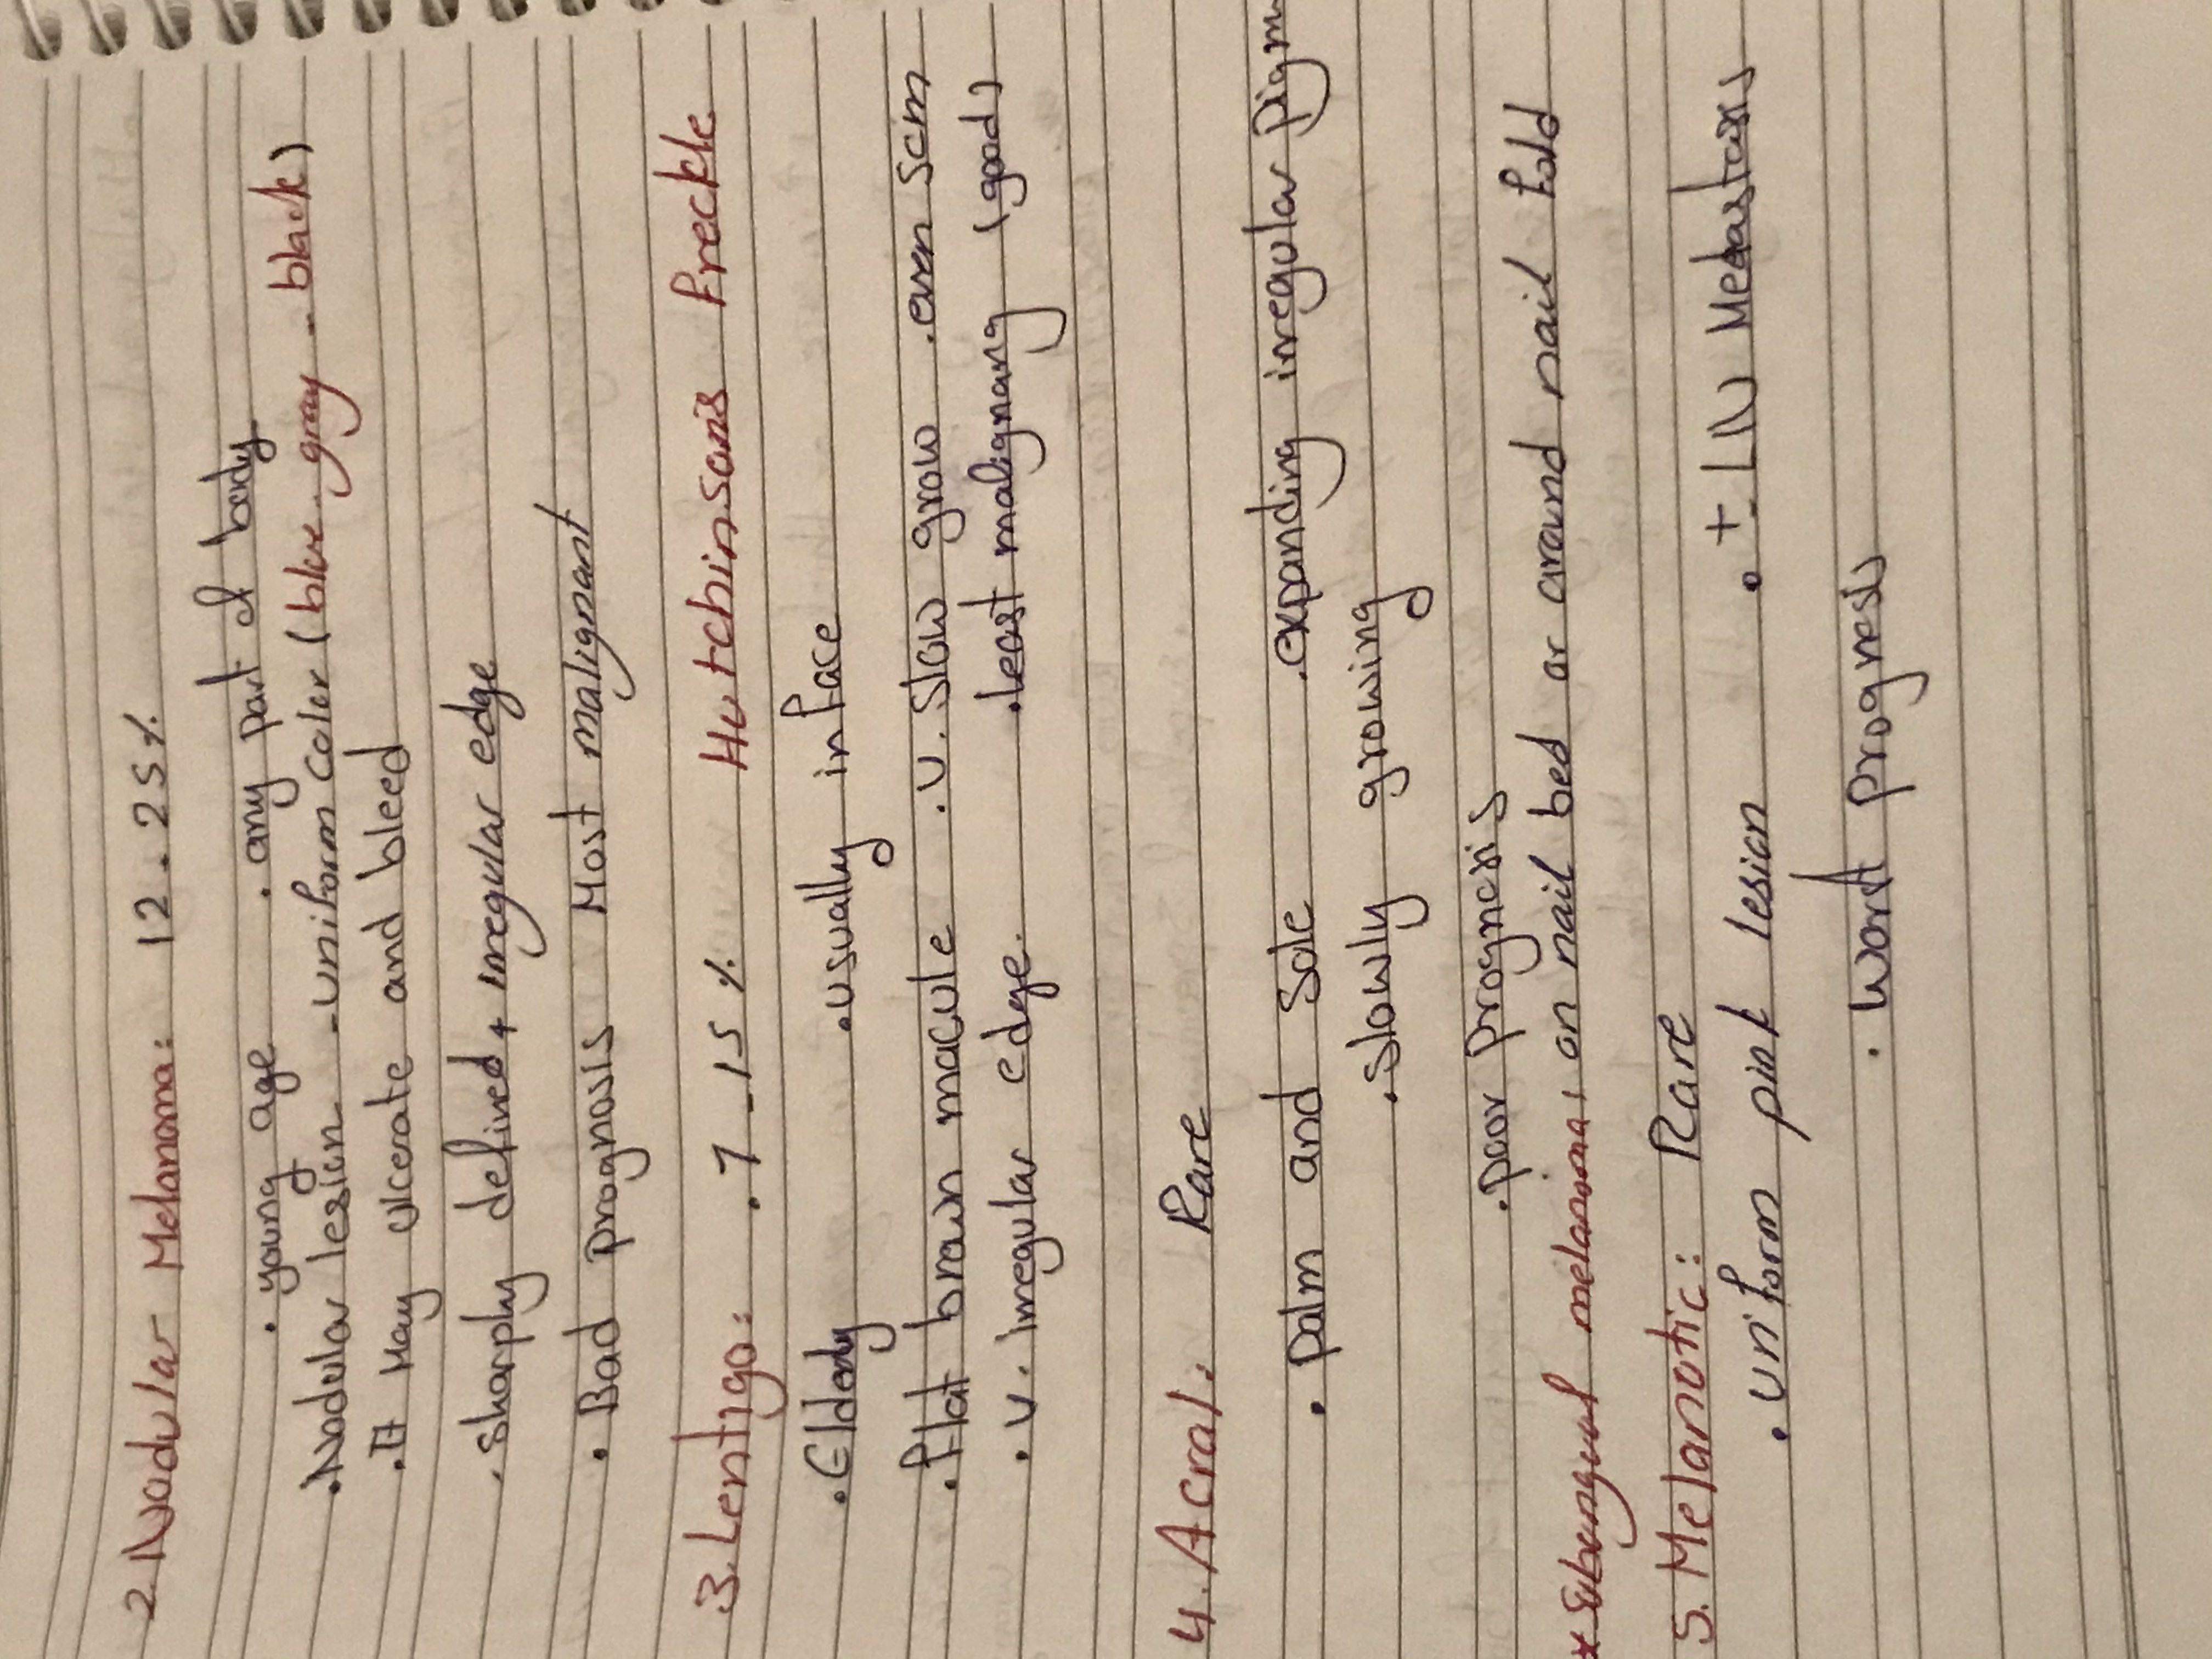 2. Nodular Melanoma: 12 - 25 %
. young age . any part of body
. Nodular lesion - uniform color (blue - gray - black)
. It May ulcerate and bleed
. sharply defined + irregular edge
. Bad prognosis Most malignant
3. Lentigo: . 7 - 15 % Hutchinson's freckle
. Elderly . usually in face
. flat brown macule . v. slow grow . even 5cm
. v. irregular edge. . least malignany (good)
4. Acral: Rare
. palm and sole . expanding irregular pigm
. slowly growing
. poor prognosis
* subungual melanoma, on nail bed or around nail fold
5. Melanotic: Rare
. uniform pink lesion . +- LN Metastasis
. worst prognosis